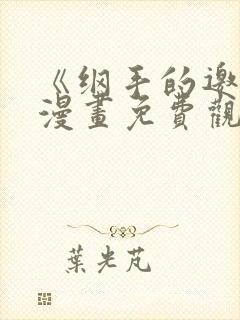 《纲手的邀
漫畫免費觀
葉光芃